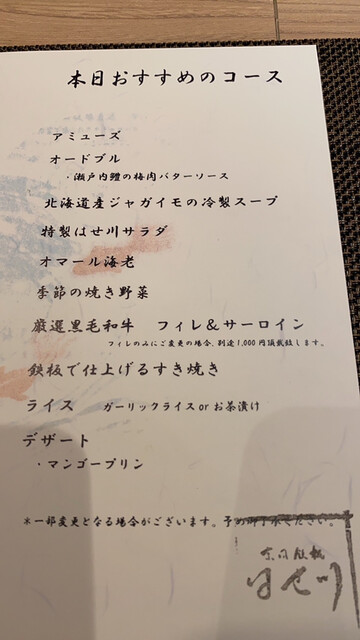 本日おすすめのコース
アミューズ
オードブル
・瀬戸内鱧の梅肉バターソース
北海道産ジャガイモの冷製スープ
特製はせ川サラダ
オマール海老
季節の焼き野菜
厳選黒毛和牛　フィレ＆サーロイン
フィレのみにご変更の場合、別途1,000円頂戴致します。
鉄板で仕上げるすき焼き
ライス　ガーリックライス or お茶漬け
デザート
・マンゴープリン
＊一部変更となる場合がございます。予め御了承ください。
はせ川